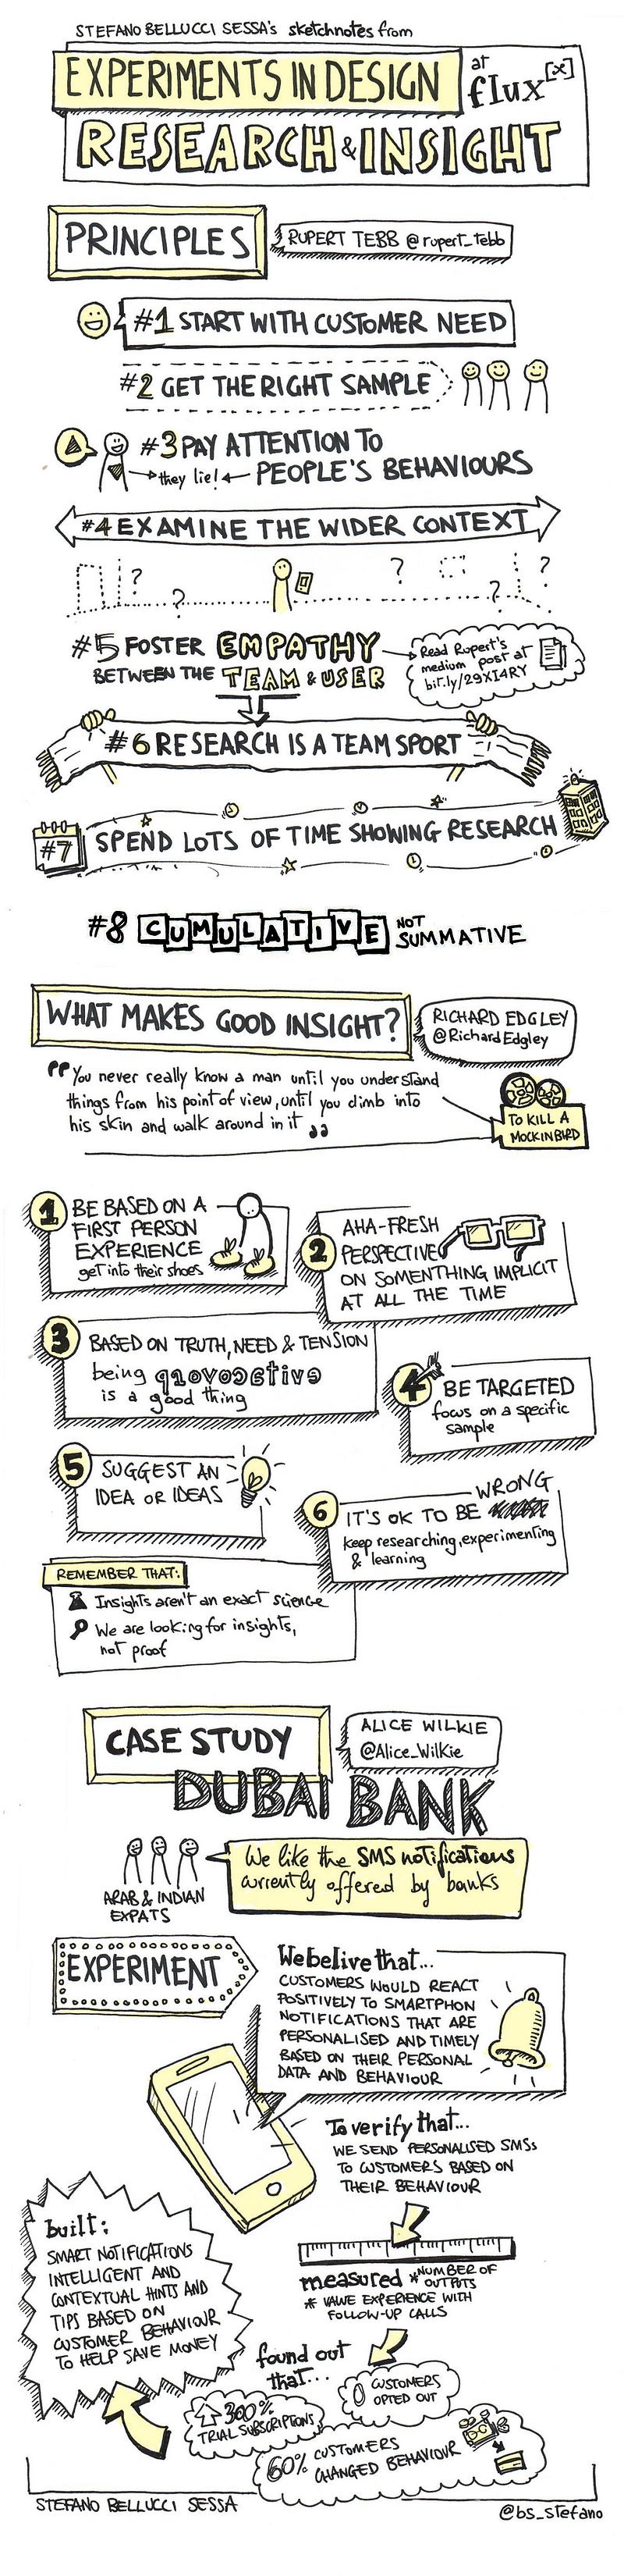 STEFANO BELLUCCI SESSA's sketchnotes from
EXPERIMENTS IN DESIGN
at
flux[x]
RESEARCH & INSIGHT
PRINCIPLES
RUPERT TEBB @rupert_tebb
#1 START WITH CUSTOMER NEED
#2 GET THE RIGHT SAMPLE
#3 PAY ATTENTION TO
they lie! PEOPLE'S BEHAVIOURS
#4 EXAMINE THE WIDER CONTEXT
? ? ? ? ?
#5 FOSTER EMPATHY
BETWEEN THE TEAM & USER
Read Rupert's
medium post at
bit.ly/29XI4RY
#6 RESEARCH IS A TEAM SPORT
#7 SPEND LOTS OF TIME SHOWING RESEARCH
#8 CUMULATIVE NOT
SUMMATIVE
WHAT MAKES GOOD INSIGHT?
RICHARD EDGLEY
@RichardEdgley
"You never really know a man until you understand
things from his point of view, until you climb into
his skin and walk around in it"
TO KILL A
MOCKINBIRD
1 BE BASED ON A
FIRST PERSON
EXPERIENCE
get into their shoes
2 AHA-FRESH
PERSPECTIVE
ON SOMENTHING IMPLICIT
AT ALL THE TIME
3 BASED ON TRUTH, NEED & TENSION
being provocative
is a good thing
4 BE TARGETED
focus on a specific
sample
5 SUGGEST AN
IDEA OR IDEAS
6 IT'S OK TO BE WRONG
keep researching, experimenting
& learning
REMEMBER THAT:
Insights aren't an exact science
We are looking for insights,
not proof
CASE STUDY
ALICE WILKIE
@Alice_Wilkie
DUBAI BANK
ARAB & INDIAN
EXPATS
We like the SMS notifications
currently offered by banks
EXPERIMENT
We belive that...
CUSTOMERS WOULD REACT
POSITIVELY TO SMARTPHON
NOTIFICATIONS THAT ARE
PERSONALISED AND TIMELY
BASED ON THEIR PERSONAL
DATA AND BEHAVIOUR
To verify that...
WE SEND PERSONALISED SMSs
TO CUSTOMERS BASED ON
THEIR BEHAVIOUR
measured * NUMBER OF
OUTPUTS
* VALUE EXPERIENCE WITH
FOLLOW-UP CALLS
found out
that...
0 CUSTOMERS
OPTED OUT
300%
TRIAL SUBSCRIPTIONS
60% CUSTOMERS
CHANGED BEHAVIOUR
built:
SMART NOTIFICATIONS
INTELLIGENT AND
CONTEXTUAL HINTS AND
TIPS BASED ON
CUSTOMER BEHAVIOUR
TO HELP SAVE MONEY
STEFANO BELLUCCI SESSA
@bs_stefano